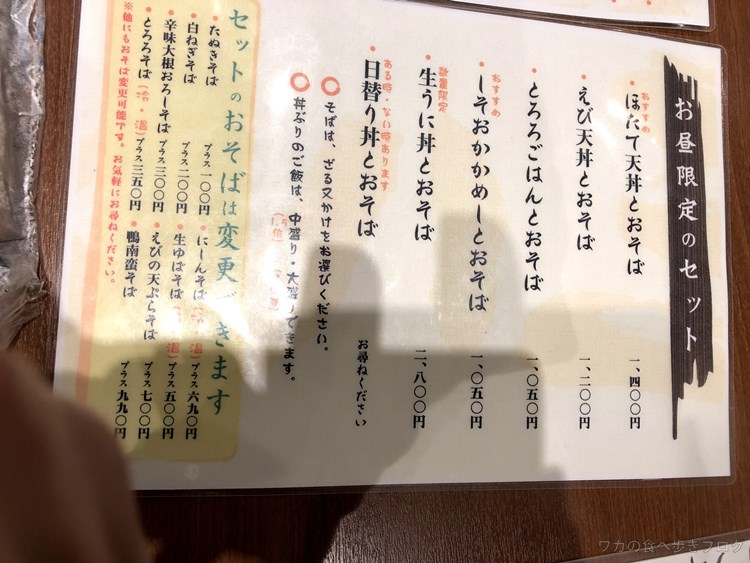 お昼限定のセット
おすすめ
・ほたて天丼とおそば 一、四〇〇円
・えび天丼とおそば 一、二〇〇円
・とろろごはんとおそば 一、〇五〇円
おすすめ
・しそおかかめしとおそば 一、〇五〇円
数量限定
・生うに丼とおそば 二、八〇〇円
ある時・ない時あります
・日替り丼とおそば お尋ねください
〇そばは、ざる又かけをお選びください。
〇丼ぶりのご飯は、中盛り・大盛りできます。
セットのおそばは変更できます
・たぬきそば プラス一〇〇円
・白ねぎそば プラス二〇〇円
・辛味大根おろしそば プラス三〇〇円
・とろろそば（冷・温）プラス三五〇円
・にしんそば（冷・温）プラス六九〇円
・生ゆばそば（冷・温）プラス五〇〇円
・えびの天ぷらそば プラス七〇〇円
・鴨南蛮そば プラス九九〇円
※他にもおそば変更可能です。お気軽にお尋ねください。
ワカの食べ歩きブログ